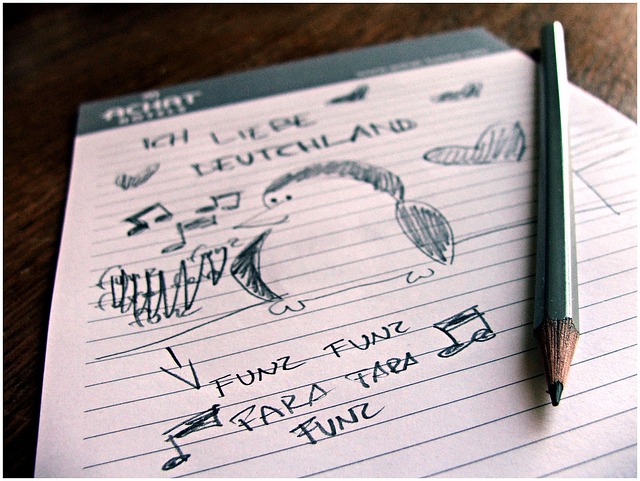 ACHAT
HOTELS
ICH LIEBE
DEUTCHLAND
FUNZ FUNZ
PARA PARA
FUNZ